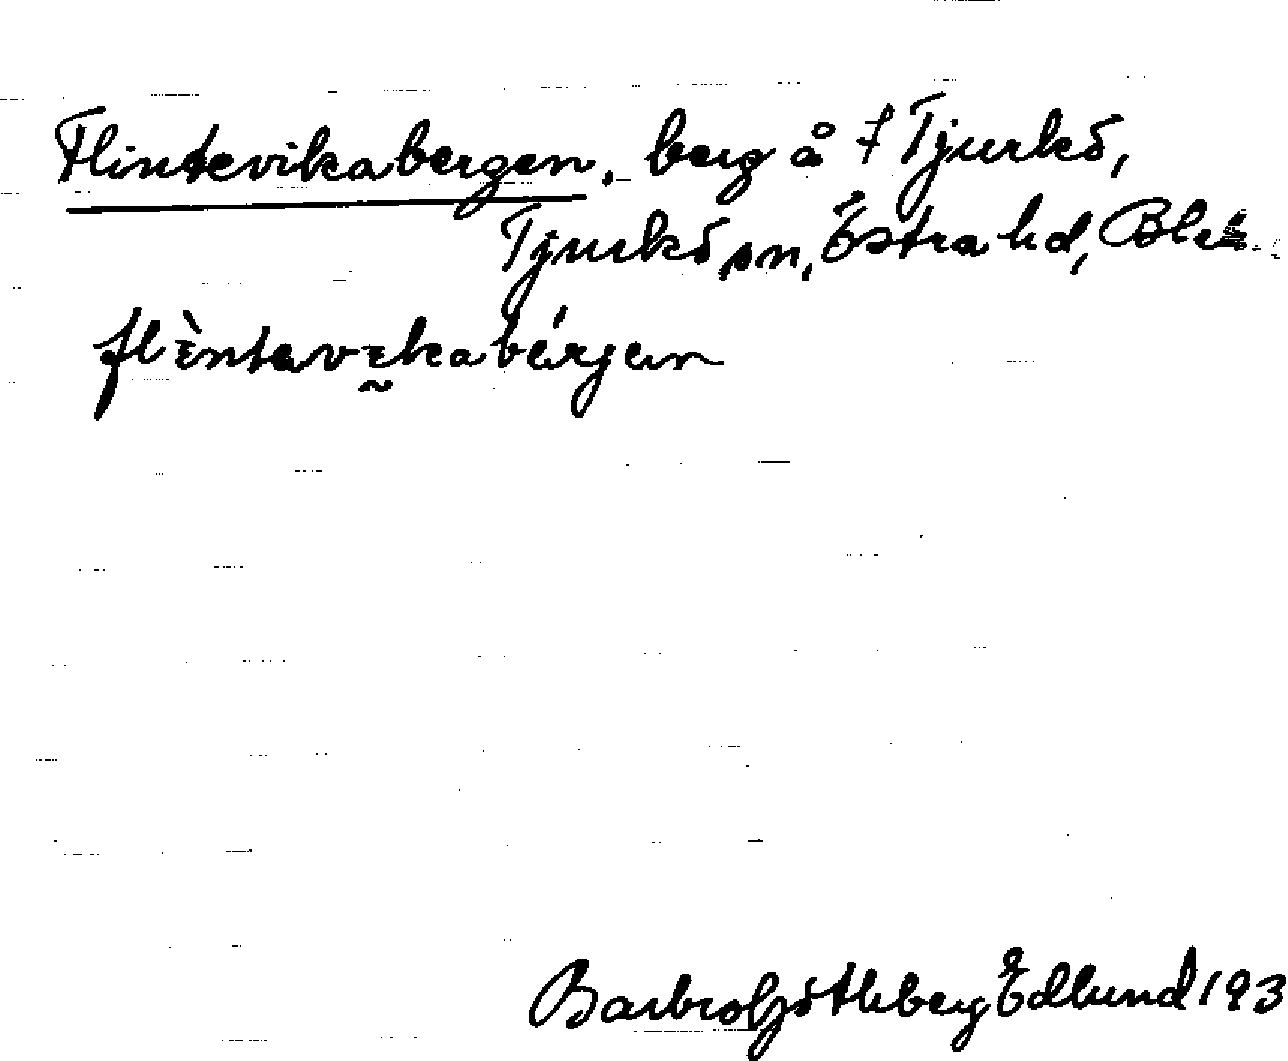 Flintevikabergen. berg å f Tjurkö,
Tjurkö sn, Östra hd, Blek.
flìntavikabérjen
Barbro Götheberg Edlund 193